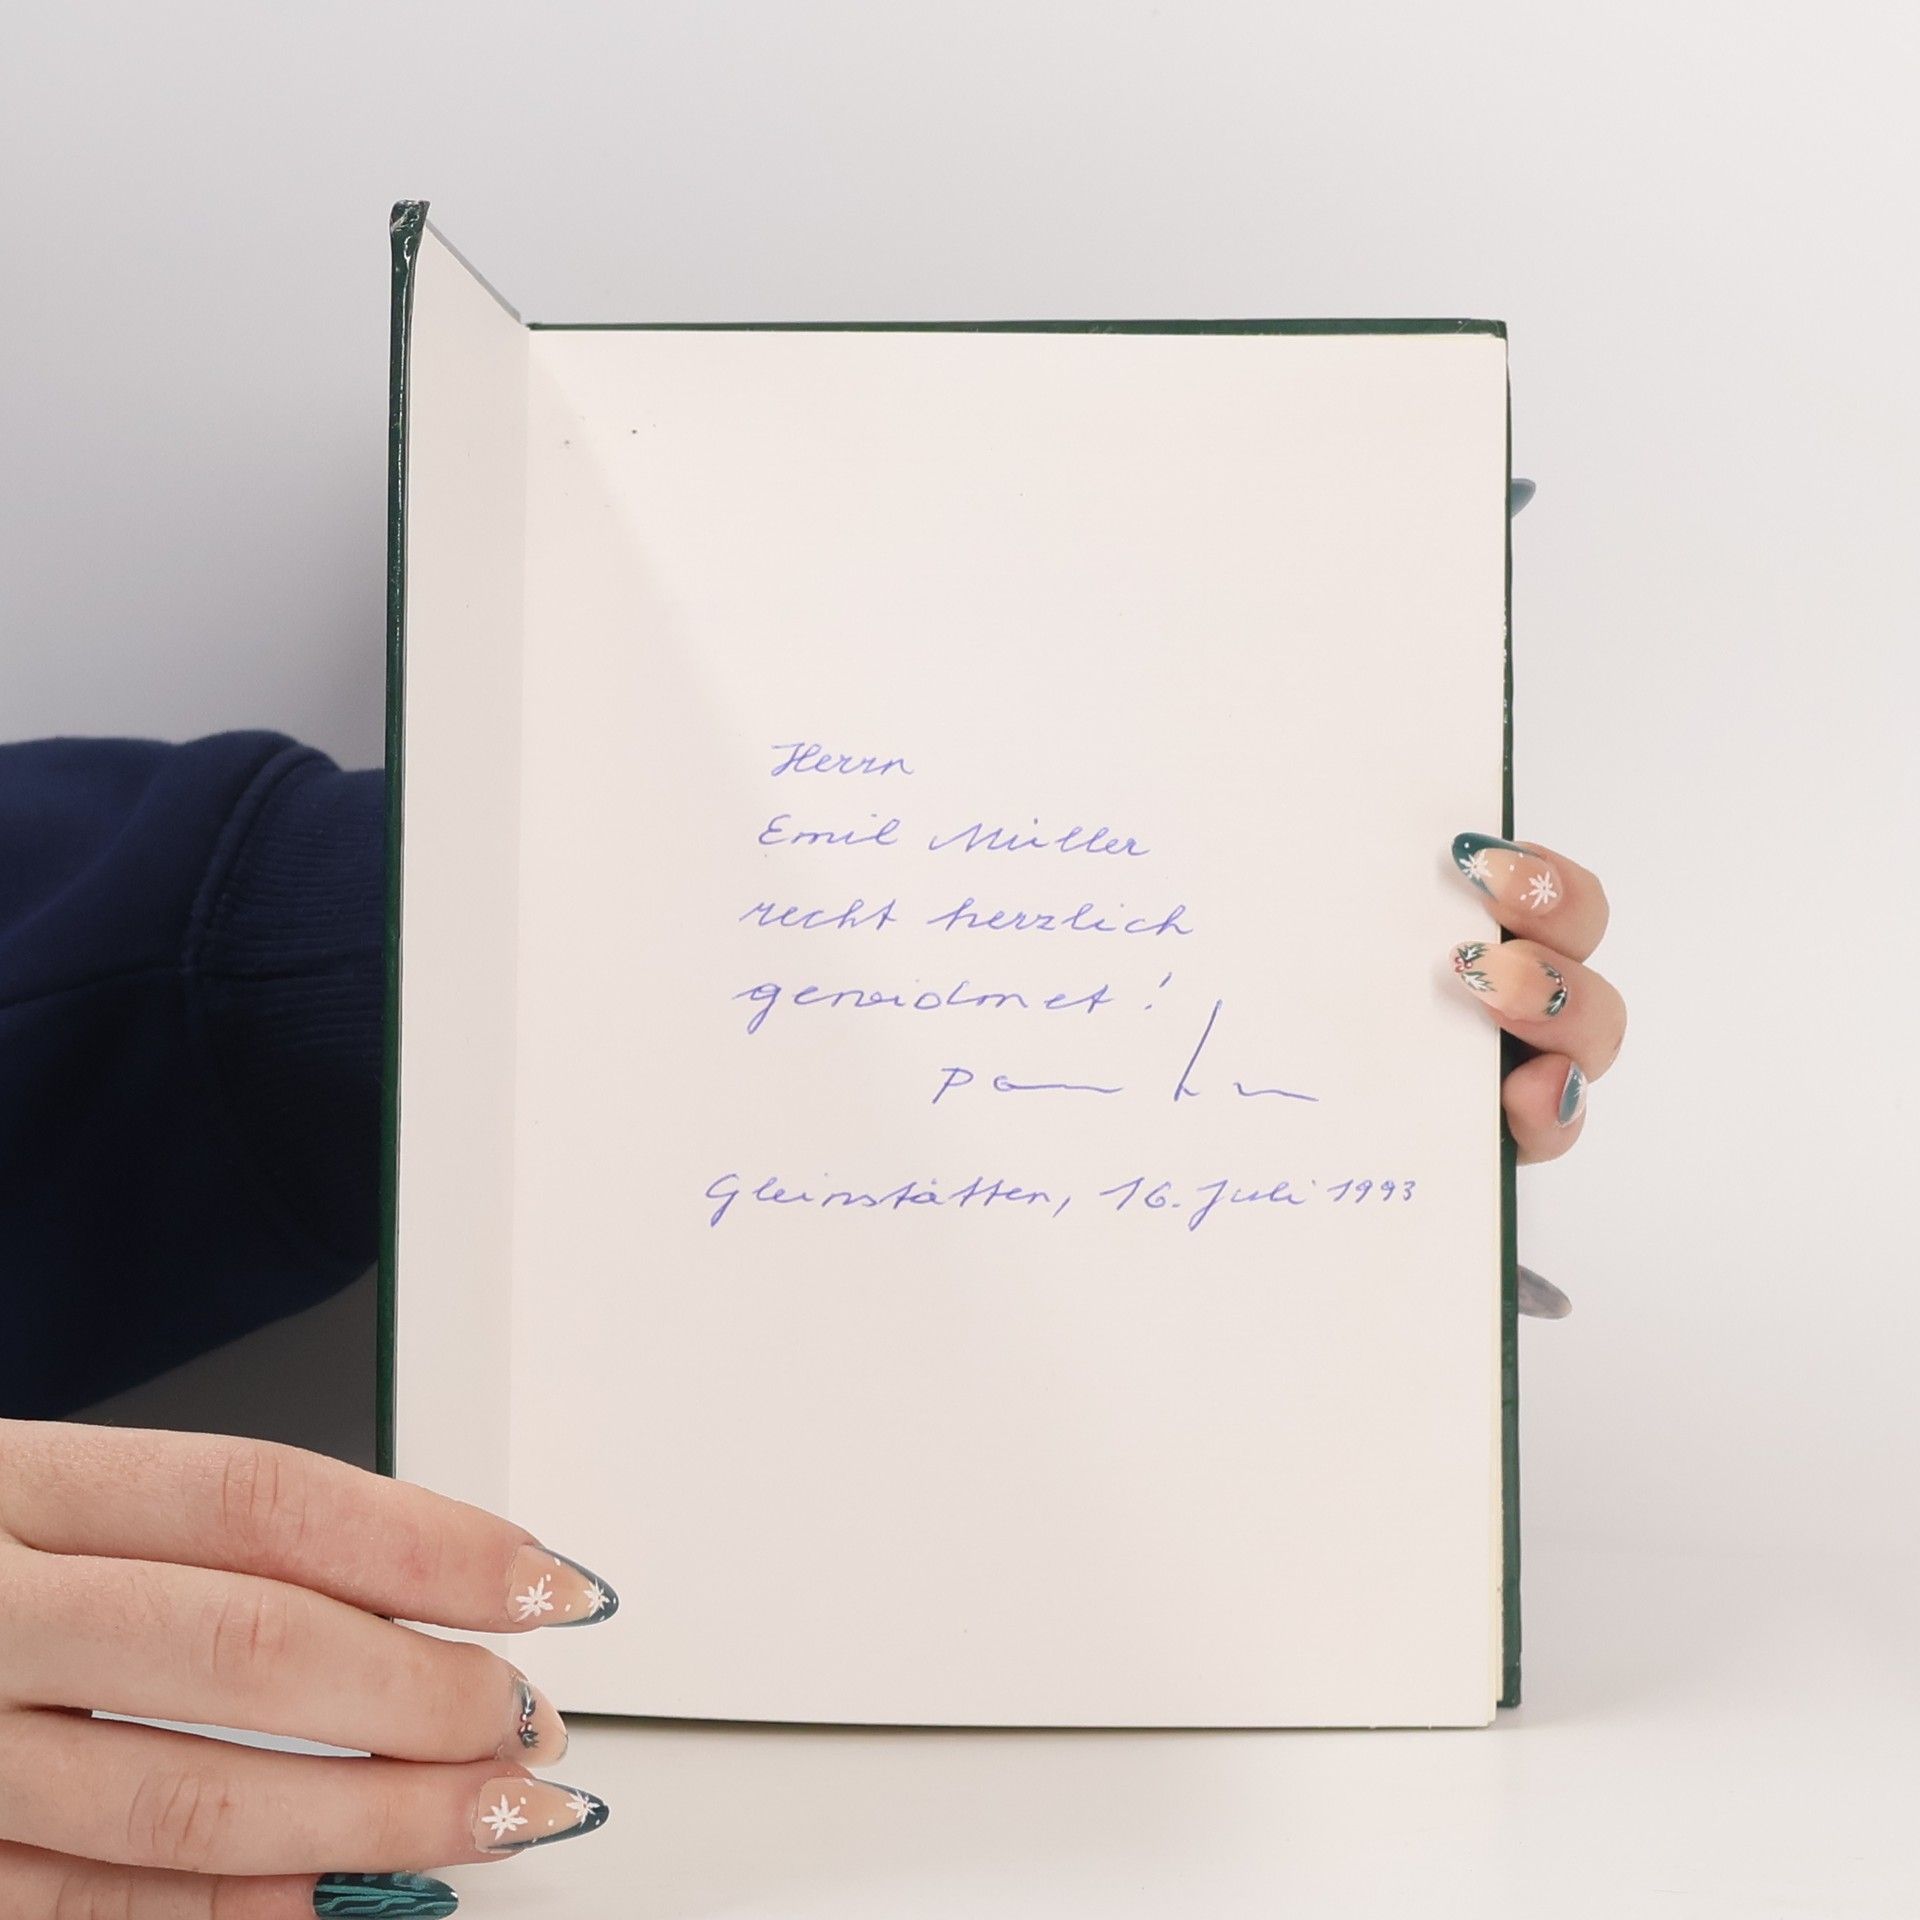 Herrn
Emil Müller
recht herzlich
gewidmet!
Gleinstätten, 16. Juli 1993